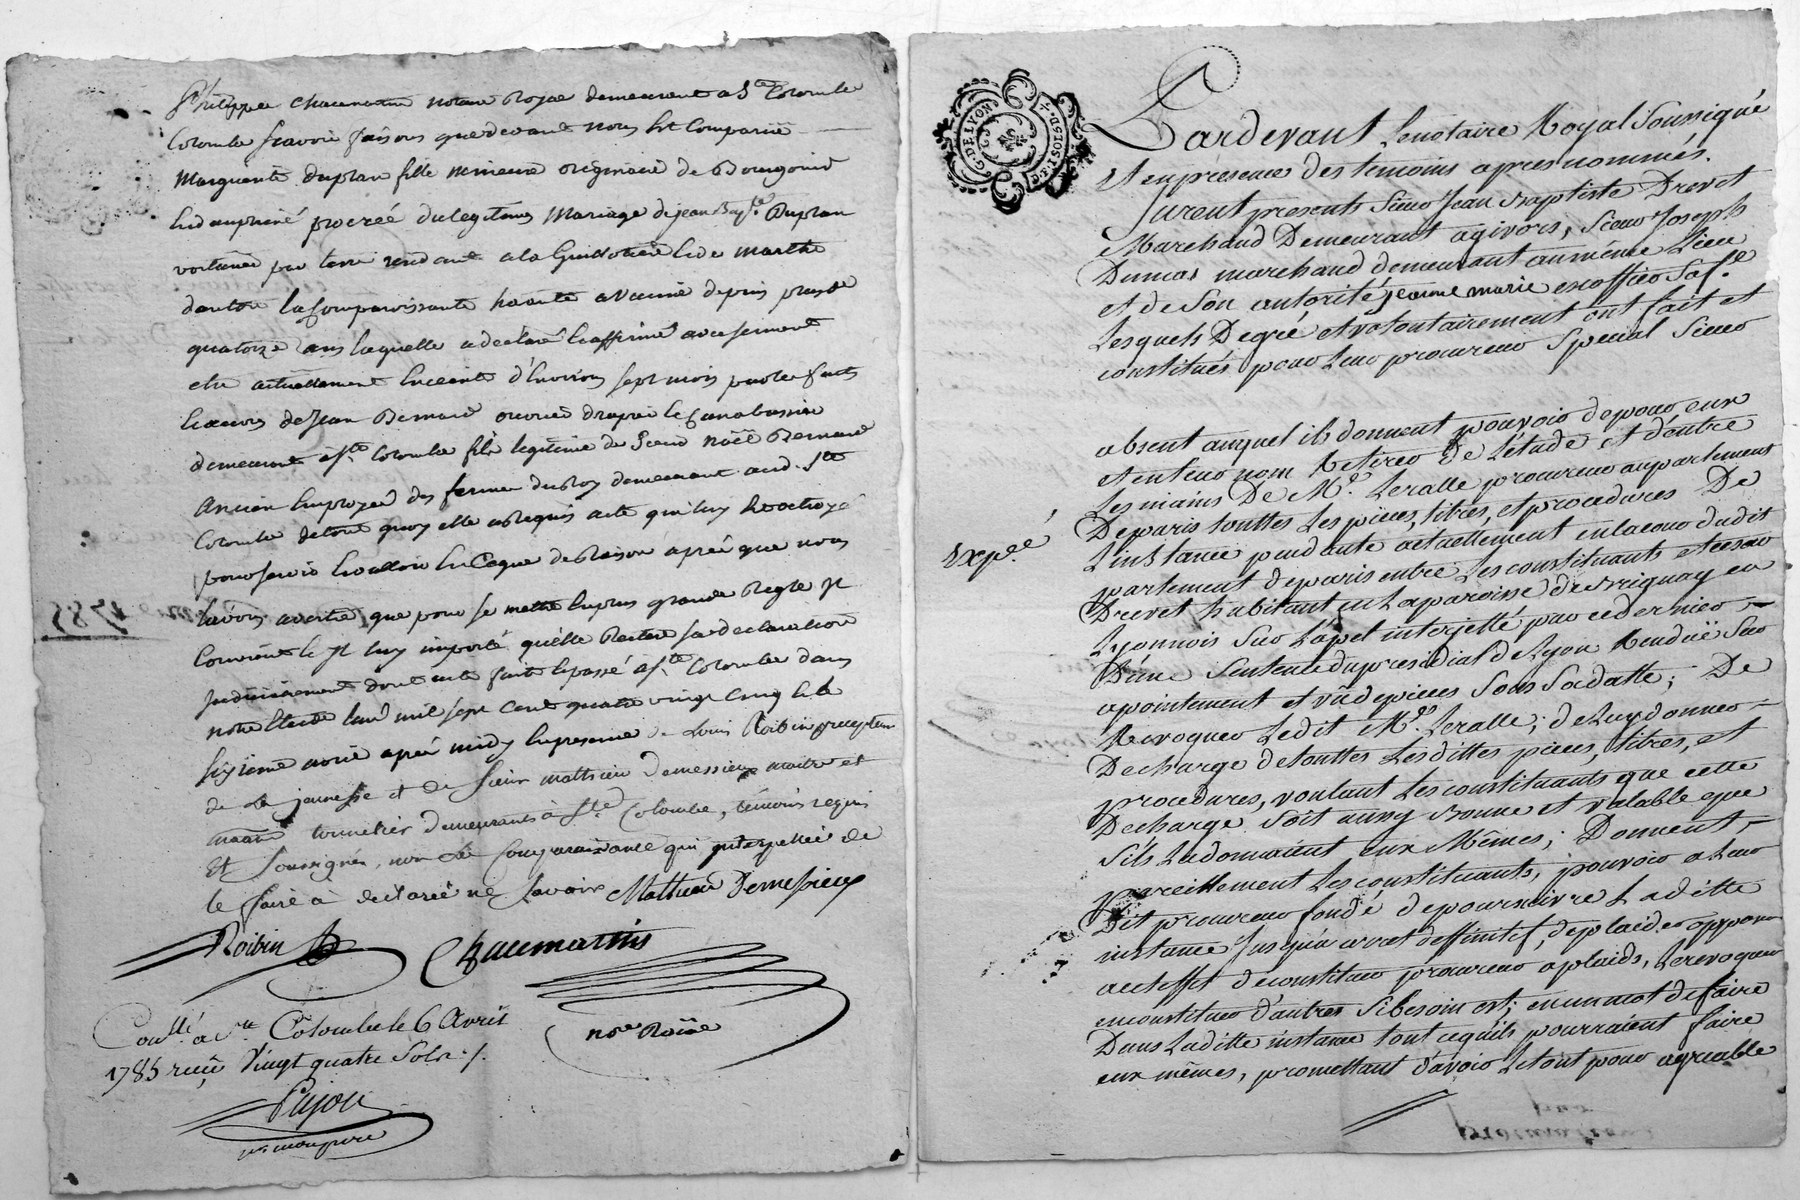 Philippe Chaumartin notaire Royal demeurant a Ste Colombe
Colombe scavoir faisons que devant nous est Comparüe
Marguerite duplan fille mineure originaire de Bourgoin
en dauphiné procréé du legitime Mariage de jean Bapte. Duplan
voiturier par terre residant a la Guillotiere et de marthe
la Comparoissante havante avanié depuis plus de
quatorze ans laquelle a declaré et affirmé avec serment
etre actuellement Enceinte d'Environ sept mois par les faits
et oeuvres de Jean Bernard ouvrier drapier
demeurant a Ste. Colombe fils legitime de Sieur Noël Bernard
Ancien Employé des fermes du Roy demeurant aud. Ste
Colombe de tout quoy elle a Requis acte qui luy Est octroyé
pour servir et valloir En Ce que de Raison aprés que nous
L'avons avertie que pour se mettre En plus grande Regle Il
Convient et Il luy importe qu'elle Reitere sa declaration
Judiciairement dont acte fait et passé a Ste. Colombe dans
notre Etude L'an mil sept cent quatre vingt Cinq et le
sixieme avril aprés midy En presence de Louis Roibin precepteur
de la jeunesse et de sieur mathieu demessieux maitre et
marchd tonnelier demeurants à Ste. Colombe, témoins requis
Et soussignés, non la Comparaissante qui interpellée de
le faire à declaree ne savoir Mathieu Demessieux
Roibin
Chaumartin
nore Roial
Conllé. a Ste Colombe le 6 Avril
1785 reçu Vingt quatre Sols ./.
Pujol
G. DE LYON
Pardevant Le notaire Royal Soussigné
Et en présence des temoins apres nommés.
furent presents Sieur Jean Baptiste Drevet
Marchand Demeurant a givors, Sieur Joseph
Dumas marchand demeurant au même Lieu
et de Son autorité jeanne marie exofficio Sa fe.
Lesquels De gré et volontairement ont fait et
constitués pour Leur procureur Special Sieur
absent auquel ils donnent pouvoir de pour eux
et en leur nom Retirer de L'étude et d'entre
Les mains De Me. Leralle procureur au parlement
De paris touttes Les pièces, titres, et procedures De
Expéé.
L'instance pendante actuellement en la cour dudit
parlement de paris entre Les constituants et
Drevet habitant en La paroisse de Brignay en
Lyonnois Sur L'apel interjetté par ce dernier
D'une Sentence du presidial de Lyon Rendüe Sur
apointement et vu de pieces Sous Sa datte ; De
Revoquer Ledit Me. Leralle ; de Luy donner
Decharge de touttes Les dittes pieces, titres, et
procedures, voulant Les constituants que cette
Decharge Soit aussy Bonne et valable que
S'ils La donnaient eux Mêmes ; Donnent
pareillement Les constituants, pouvoir a Leur
Dit procureur fondé de poursuivre Laditte
instance jusqu'a arret deffinitif, de plaider opposer
a cet effet de constituer procureur a plaids, Le revoquer
en constituer d'autres Si besoin est ; en un mot de faire
Dans Laditte instance tout ce qu'ils pourraient faire
eux mêmes, promettant d'avoir Le tout pour agreable